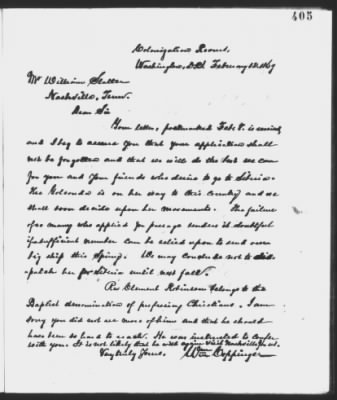 405
Colonization Rooms,
Washington, D.C. February 12, 1867
Mr William
Nashville, Tenn.
Dear Sir
Your letter, postmarked Feb. 8. is received
and I beg to assure you that your application shall
not be forgotten and that we will do the best we can
for you and your friends who desire to go to Liberia.
The Golconda is on her way to this Country and we
shall soon decide upon her movements. The failure
of so many who applied for passage renders it doubtful
if a sufficient number can be relied upon to send over
big ship this Spring. We may conclude not to dis-
patch her for Liberia until next fall.
Rev Clement Robinson belongs to the
Baptist denomination of professing Christians. I am
sorry you did not see more of him and that he should
have been so hard to reach. He was instructed to confer
with you. It is not likely that he will again visit Nashville
Very truly Yours, Wm Coppinger